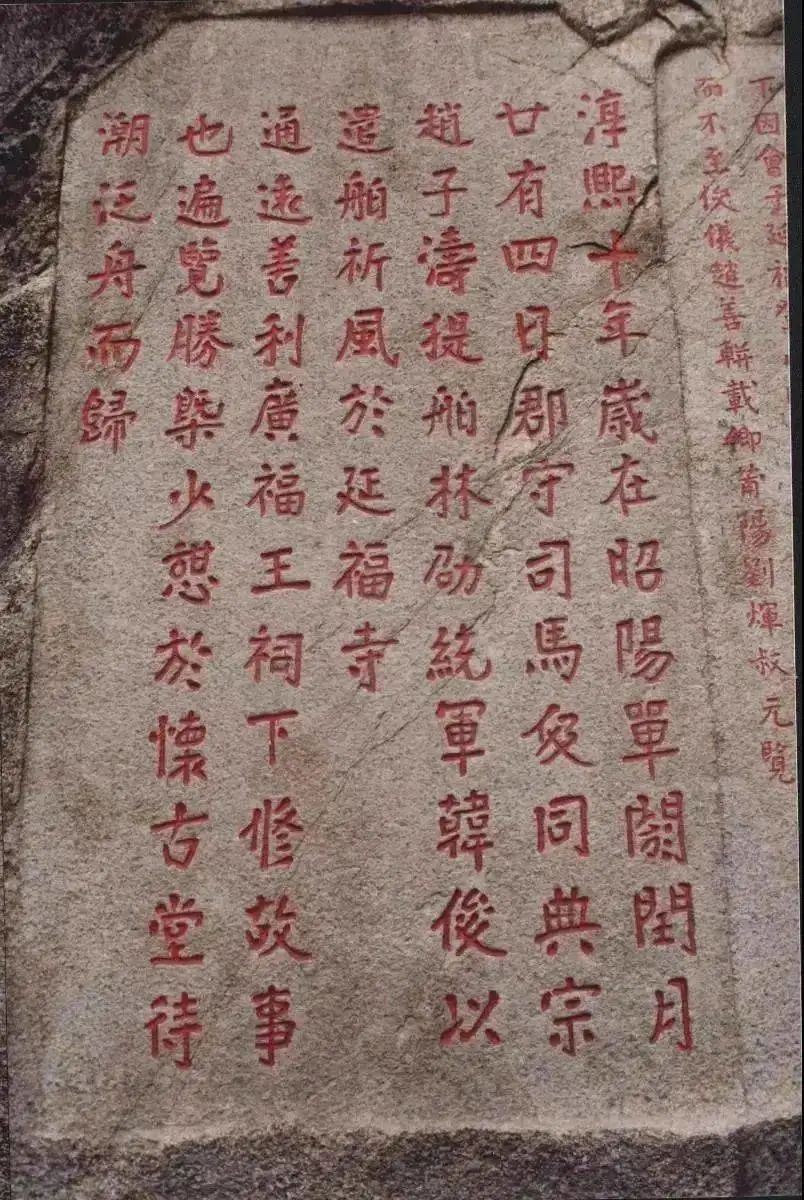 下因會于延福
而不至俊儀趙善輧載卿莆陽劉煇叔元覽
淳熙十年歲在昭陽單閼閏月
廿有四日郡守司馬伋同典宗
趙子濤提舶林劭統軍韓俊以
遣舶祈風於延福寺
通遠善利廣福王祠下修故事
也遍覽勝槩少憩於懷古堂待
潮泛舟而歸